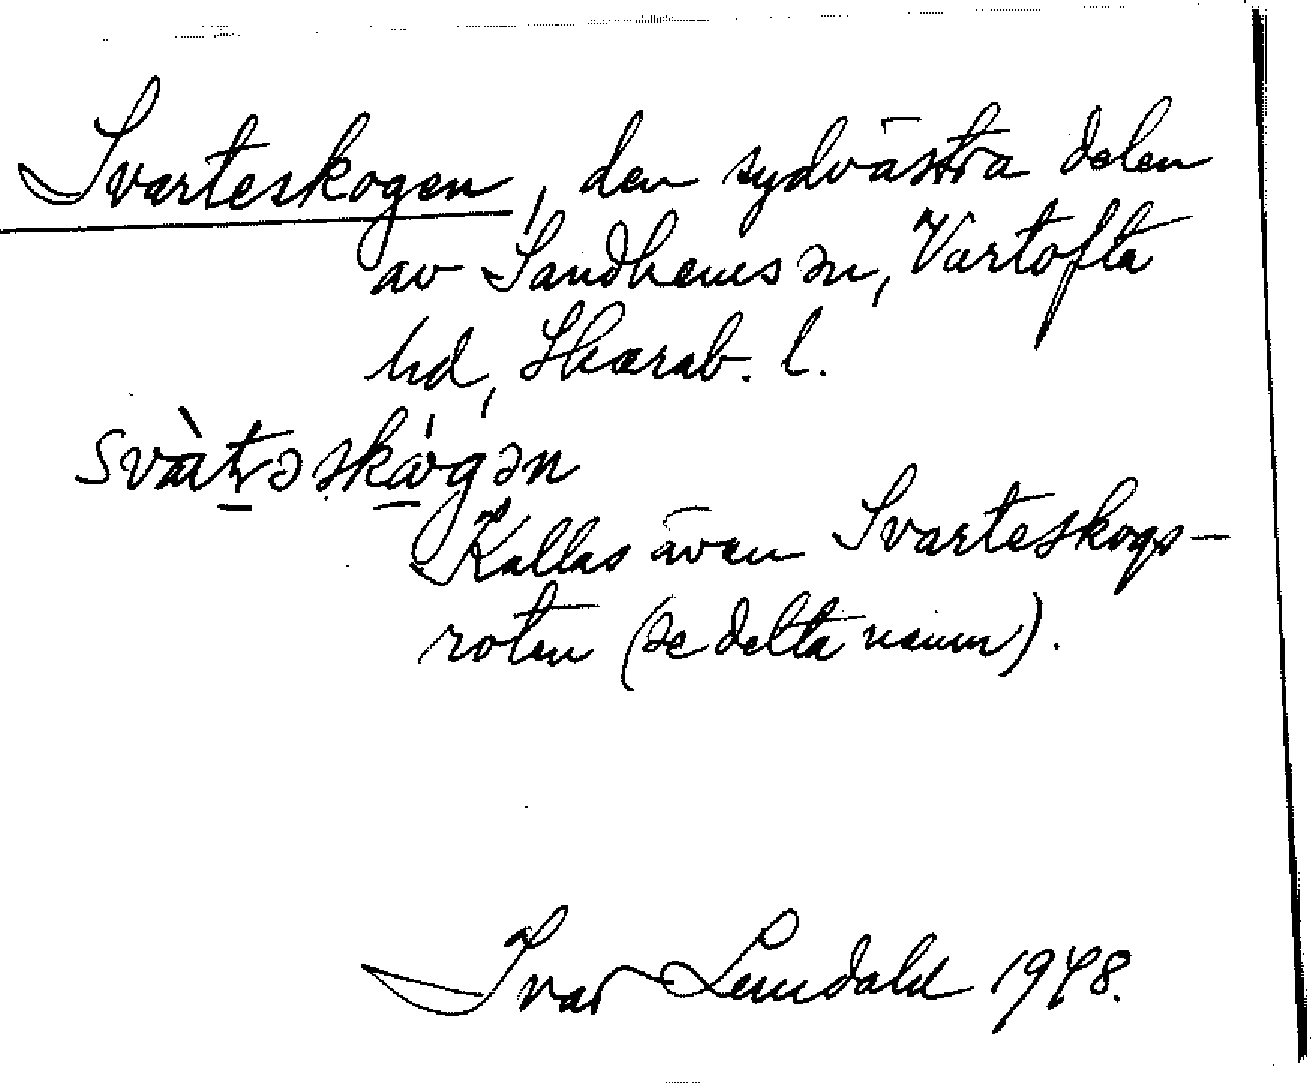 Svarteskogen, den sydvästra delen
av Sandhems sn, Vartofta
hd, Skarab. l.
svàtəskágən
Kallas även Svarteskogs-
roten (se detta namn).
Ivar Lundahl 1948.